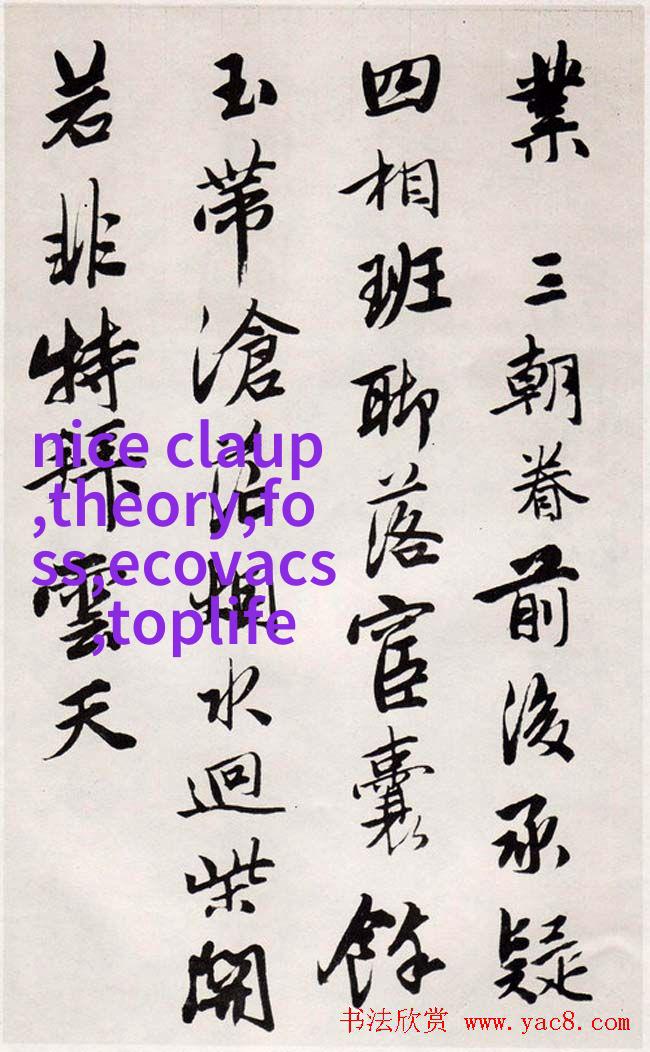 業 三朝眷前後承疑
四相班聊落宦囊餘
玉帶滄茫烟水迴柴開
若非特拜雲天
nice claup
,theory,fo
ss,ecovacs
,toplife
书法欣赏 www.yac8.com